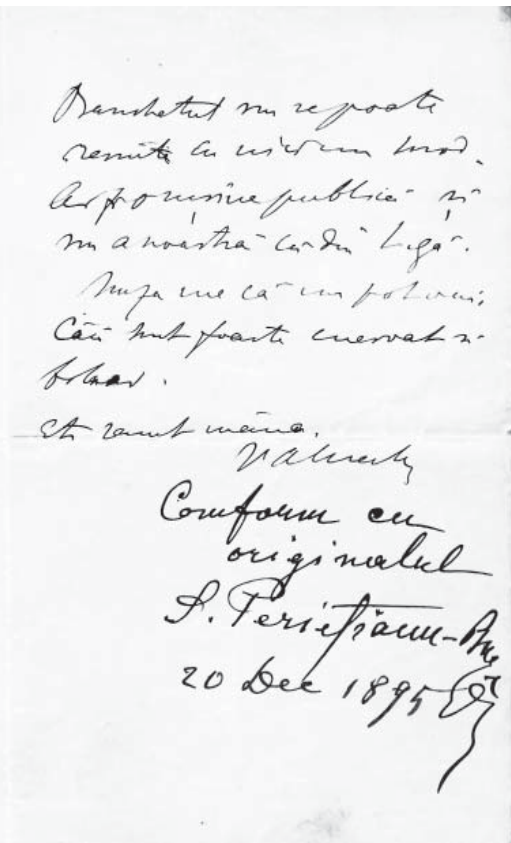 Banchetul nu se poate
remite cu nici un mod.
Ar fi o rușine publică și
nu a noastră cei din Ligă.
că nu pot veni,
Căci sunt foarte enervat și
bolnav.
sărut mâna.
Comform cu
originalul
S. Perieţianu-Buzău
20 Dec 1895